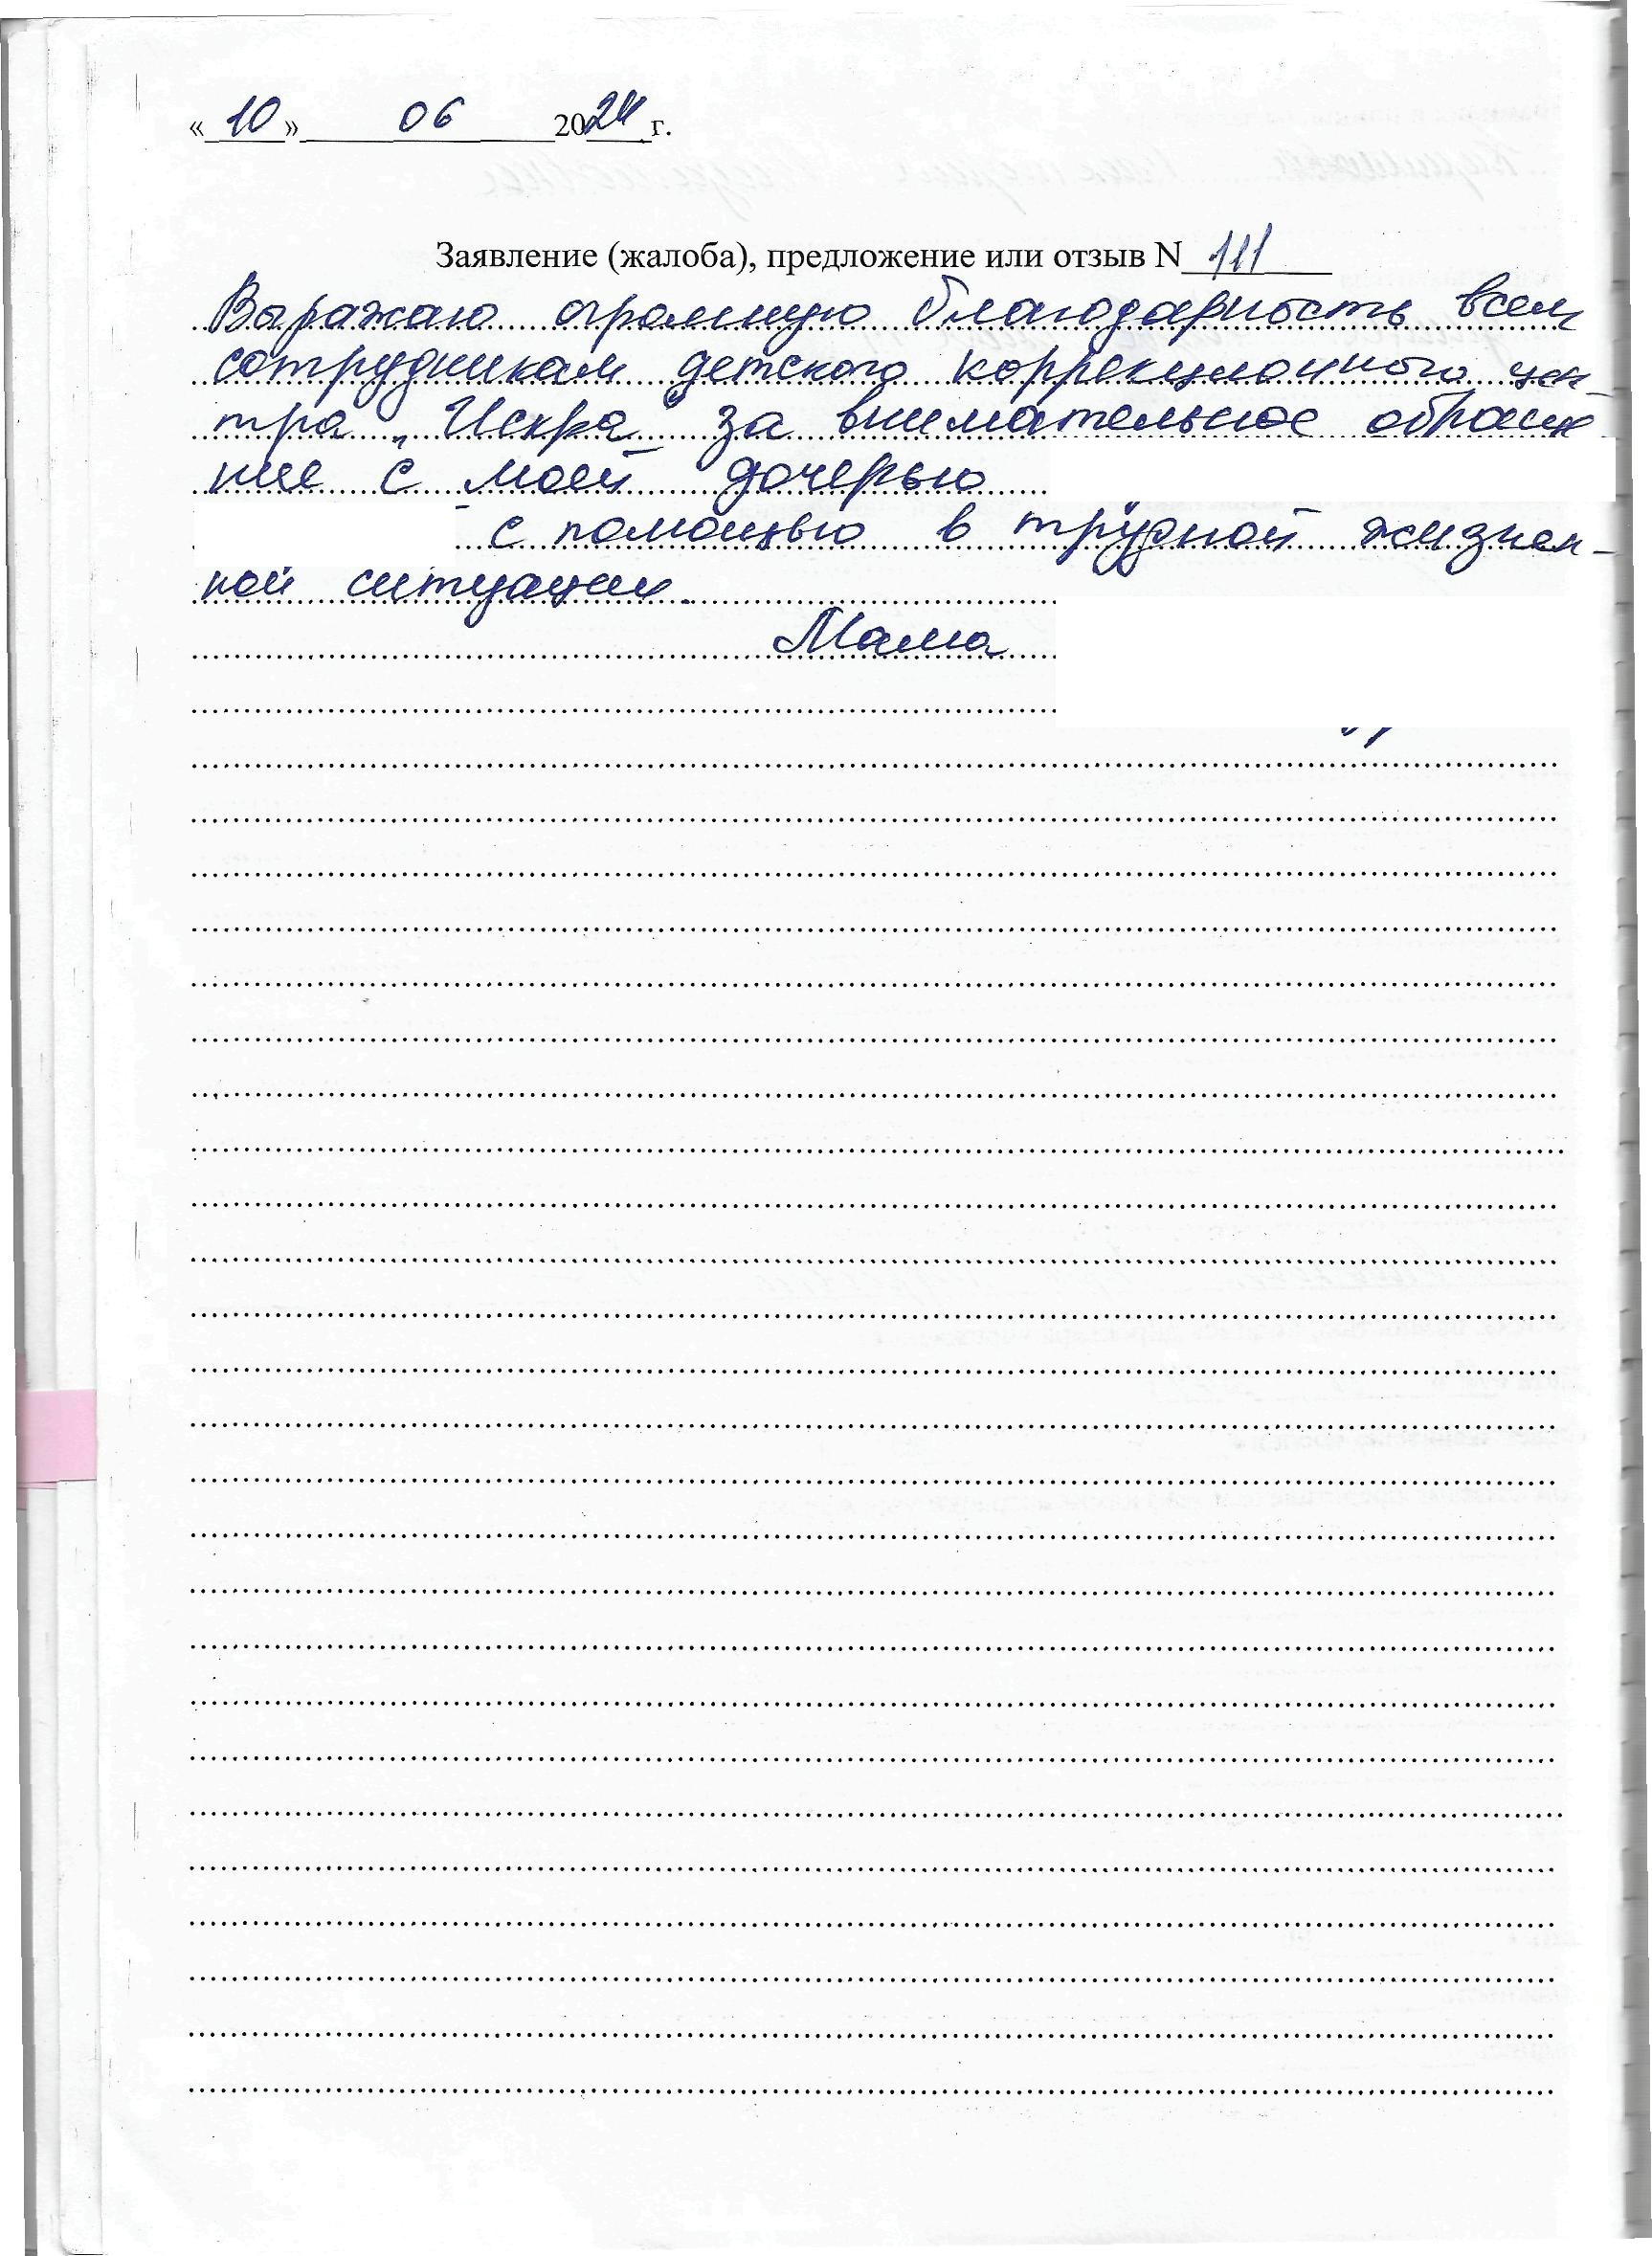 «10» 06 2024 г.
Заявление (жалоба), предложение или отзыв N 111
Выражаю огромную благодарность всем
сотрудникам детского коррекционного цен-
тра „Искра" за внимательное обраще
ние с моей дочерью
с помощью в трудной жизнен-
ной ситуации.
Мама